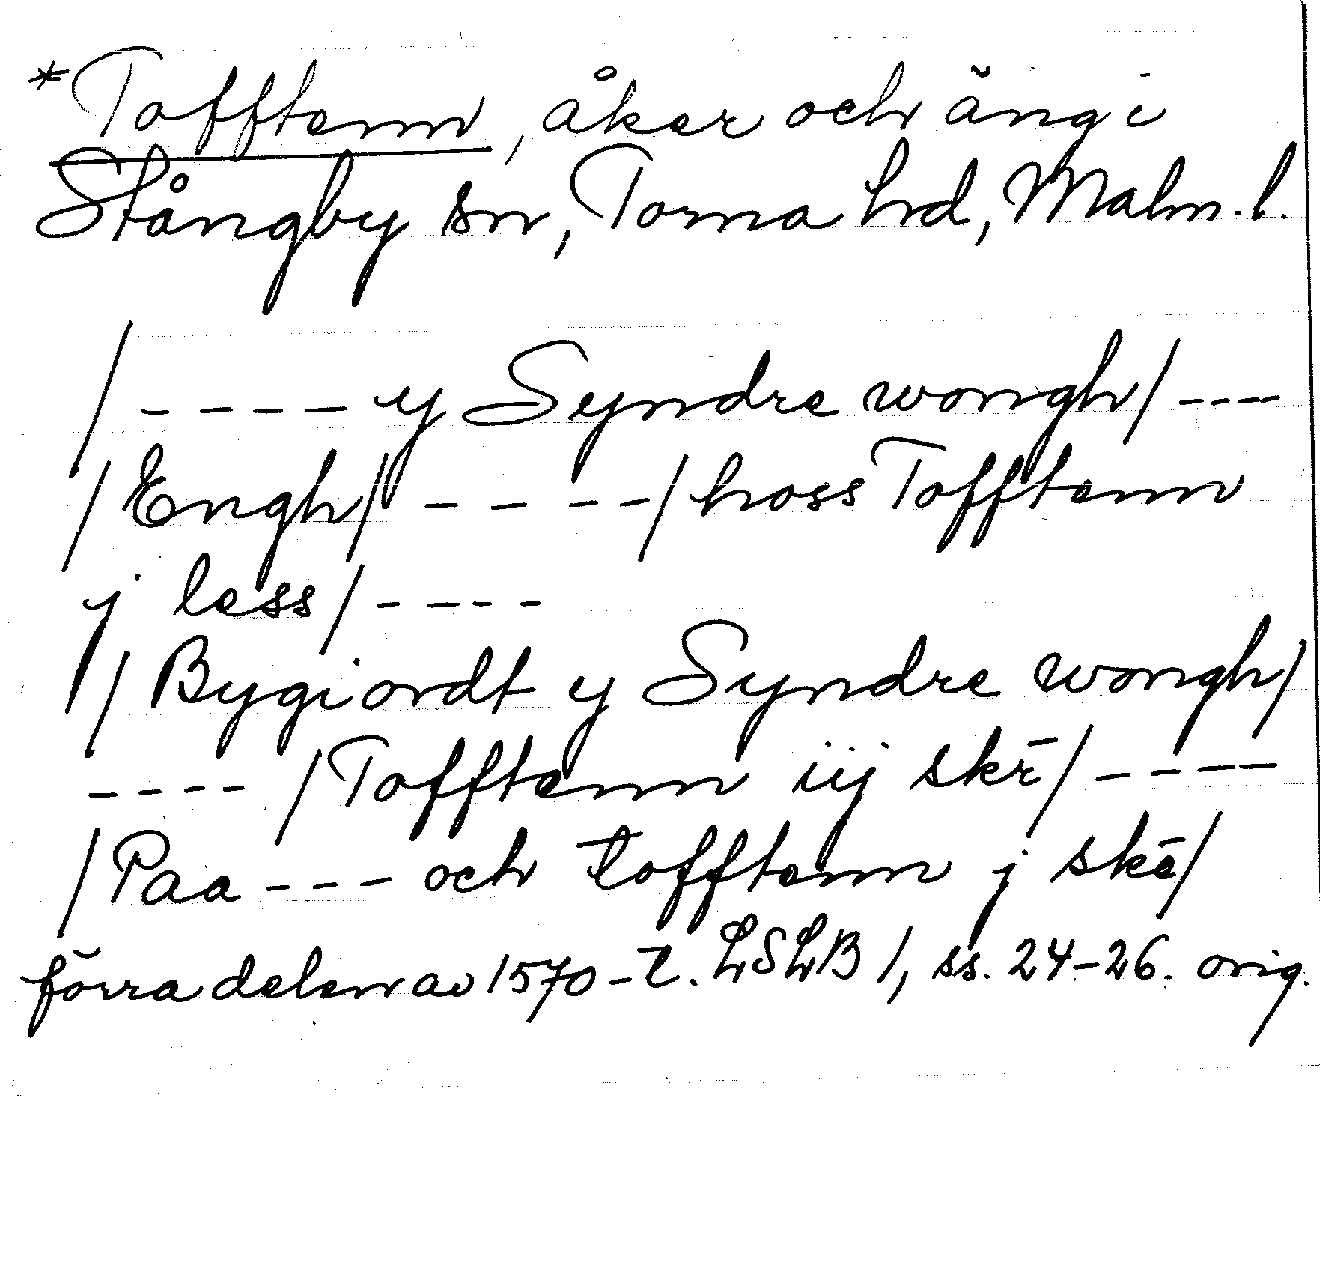 *Tofftenn, åker och äng i
Stångby sn, Torna hd, Malm. l.
/ - - - - y Syndre wongh/ - - - -
/Engh/ - - - - -/hoss Tofftenn
j less/ - - - -
/Bygiordt y Syndre wongh/
- - - - /Tofftenn iij skē/ - - - -
/Paa - - - och tofftenn j skē/
förra delen av 1570-t. LSLB 1, ss. 24-26. orig.